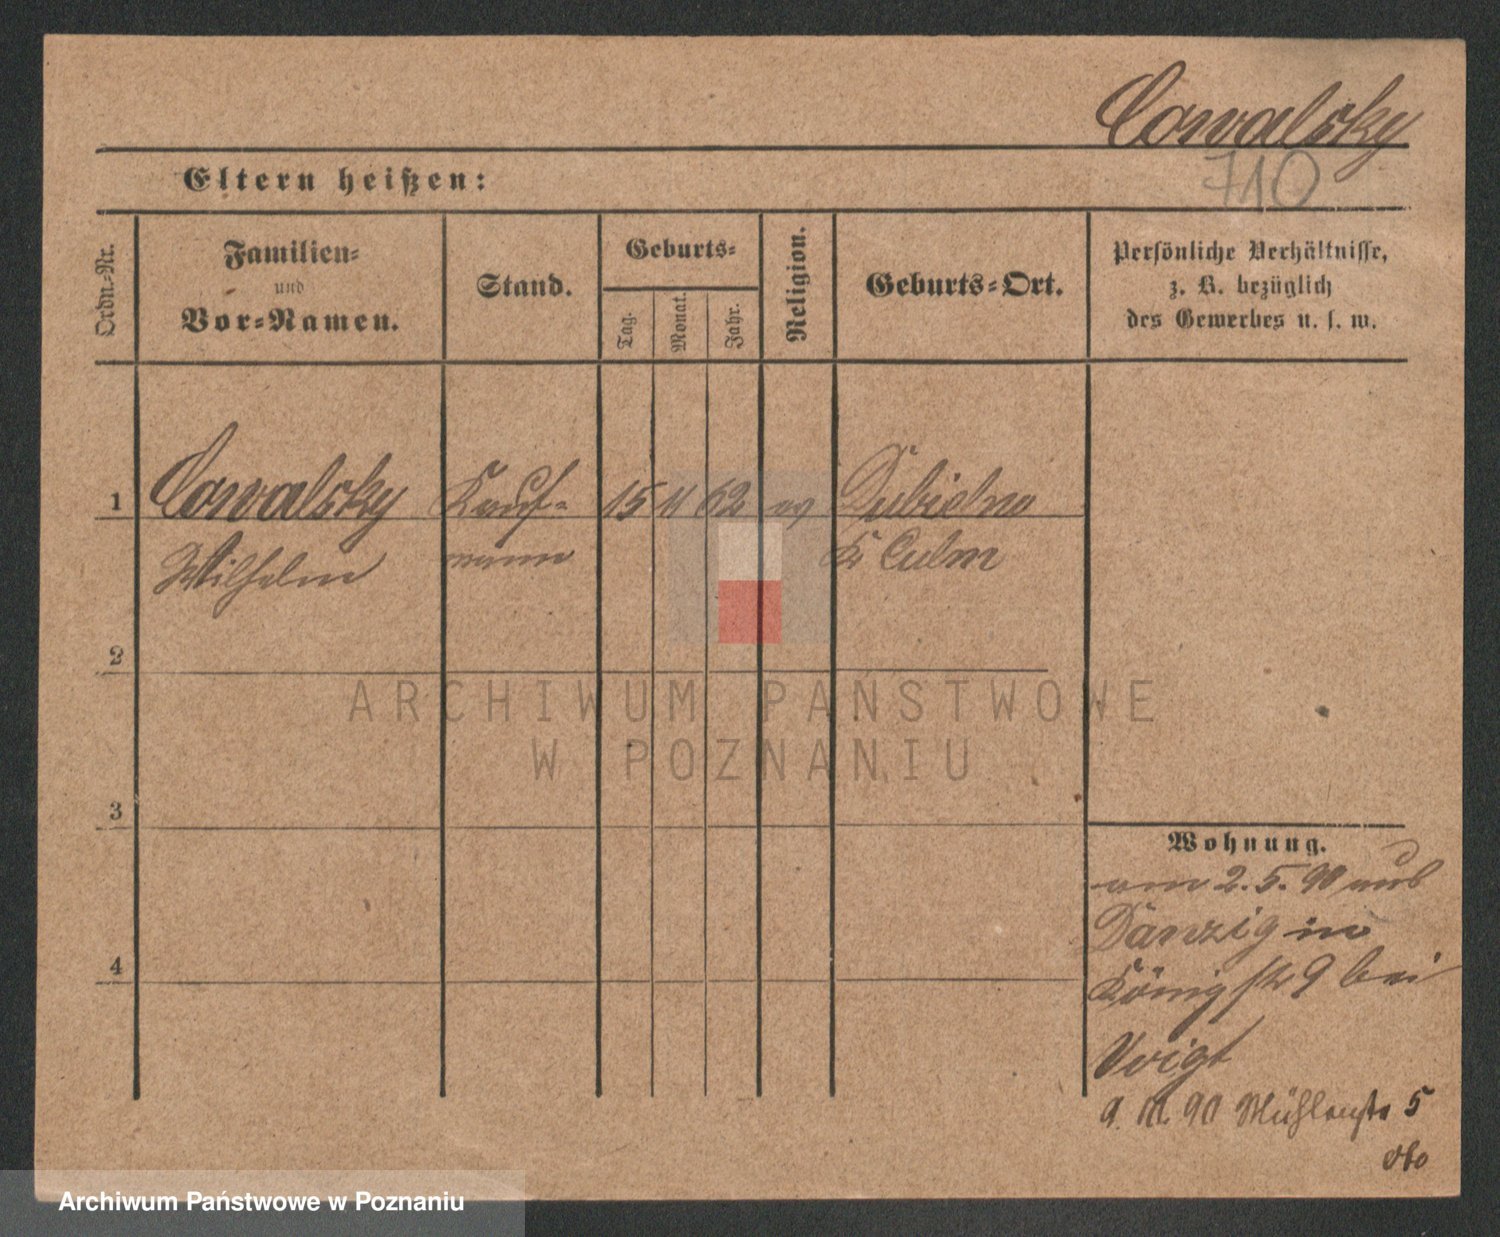 Cowalsky
710
Eltern heißen:
Ordn.-Nr.
Familien-
und
Vor-Namen.
Stand.
Geburts-
Tag.
Monat.
Jahr.
Religion.
Geburts-Ort.
Persönliche Verhältnisse,
z. B. bezüglich
des Gewerbes u. s. w.
1 Cowalsky Kauf- 15 11 62 ev Dubielno
Wilhelm mann Kr Culm
2
3
4
Wohnung.
am 2.5.90 aus
Danzig in
Königstr 9 bei
Voigt
9. 10. 90 Mühlenstr 5
ARCHIWUM PAŃSTWOWE
W POZNANIU
Archiwum Państwowe w Poznaniu